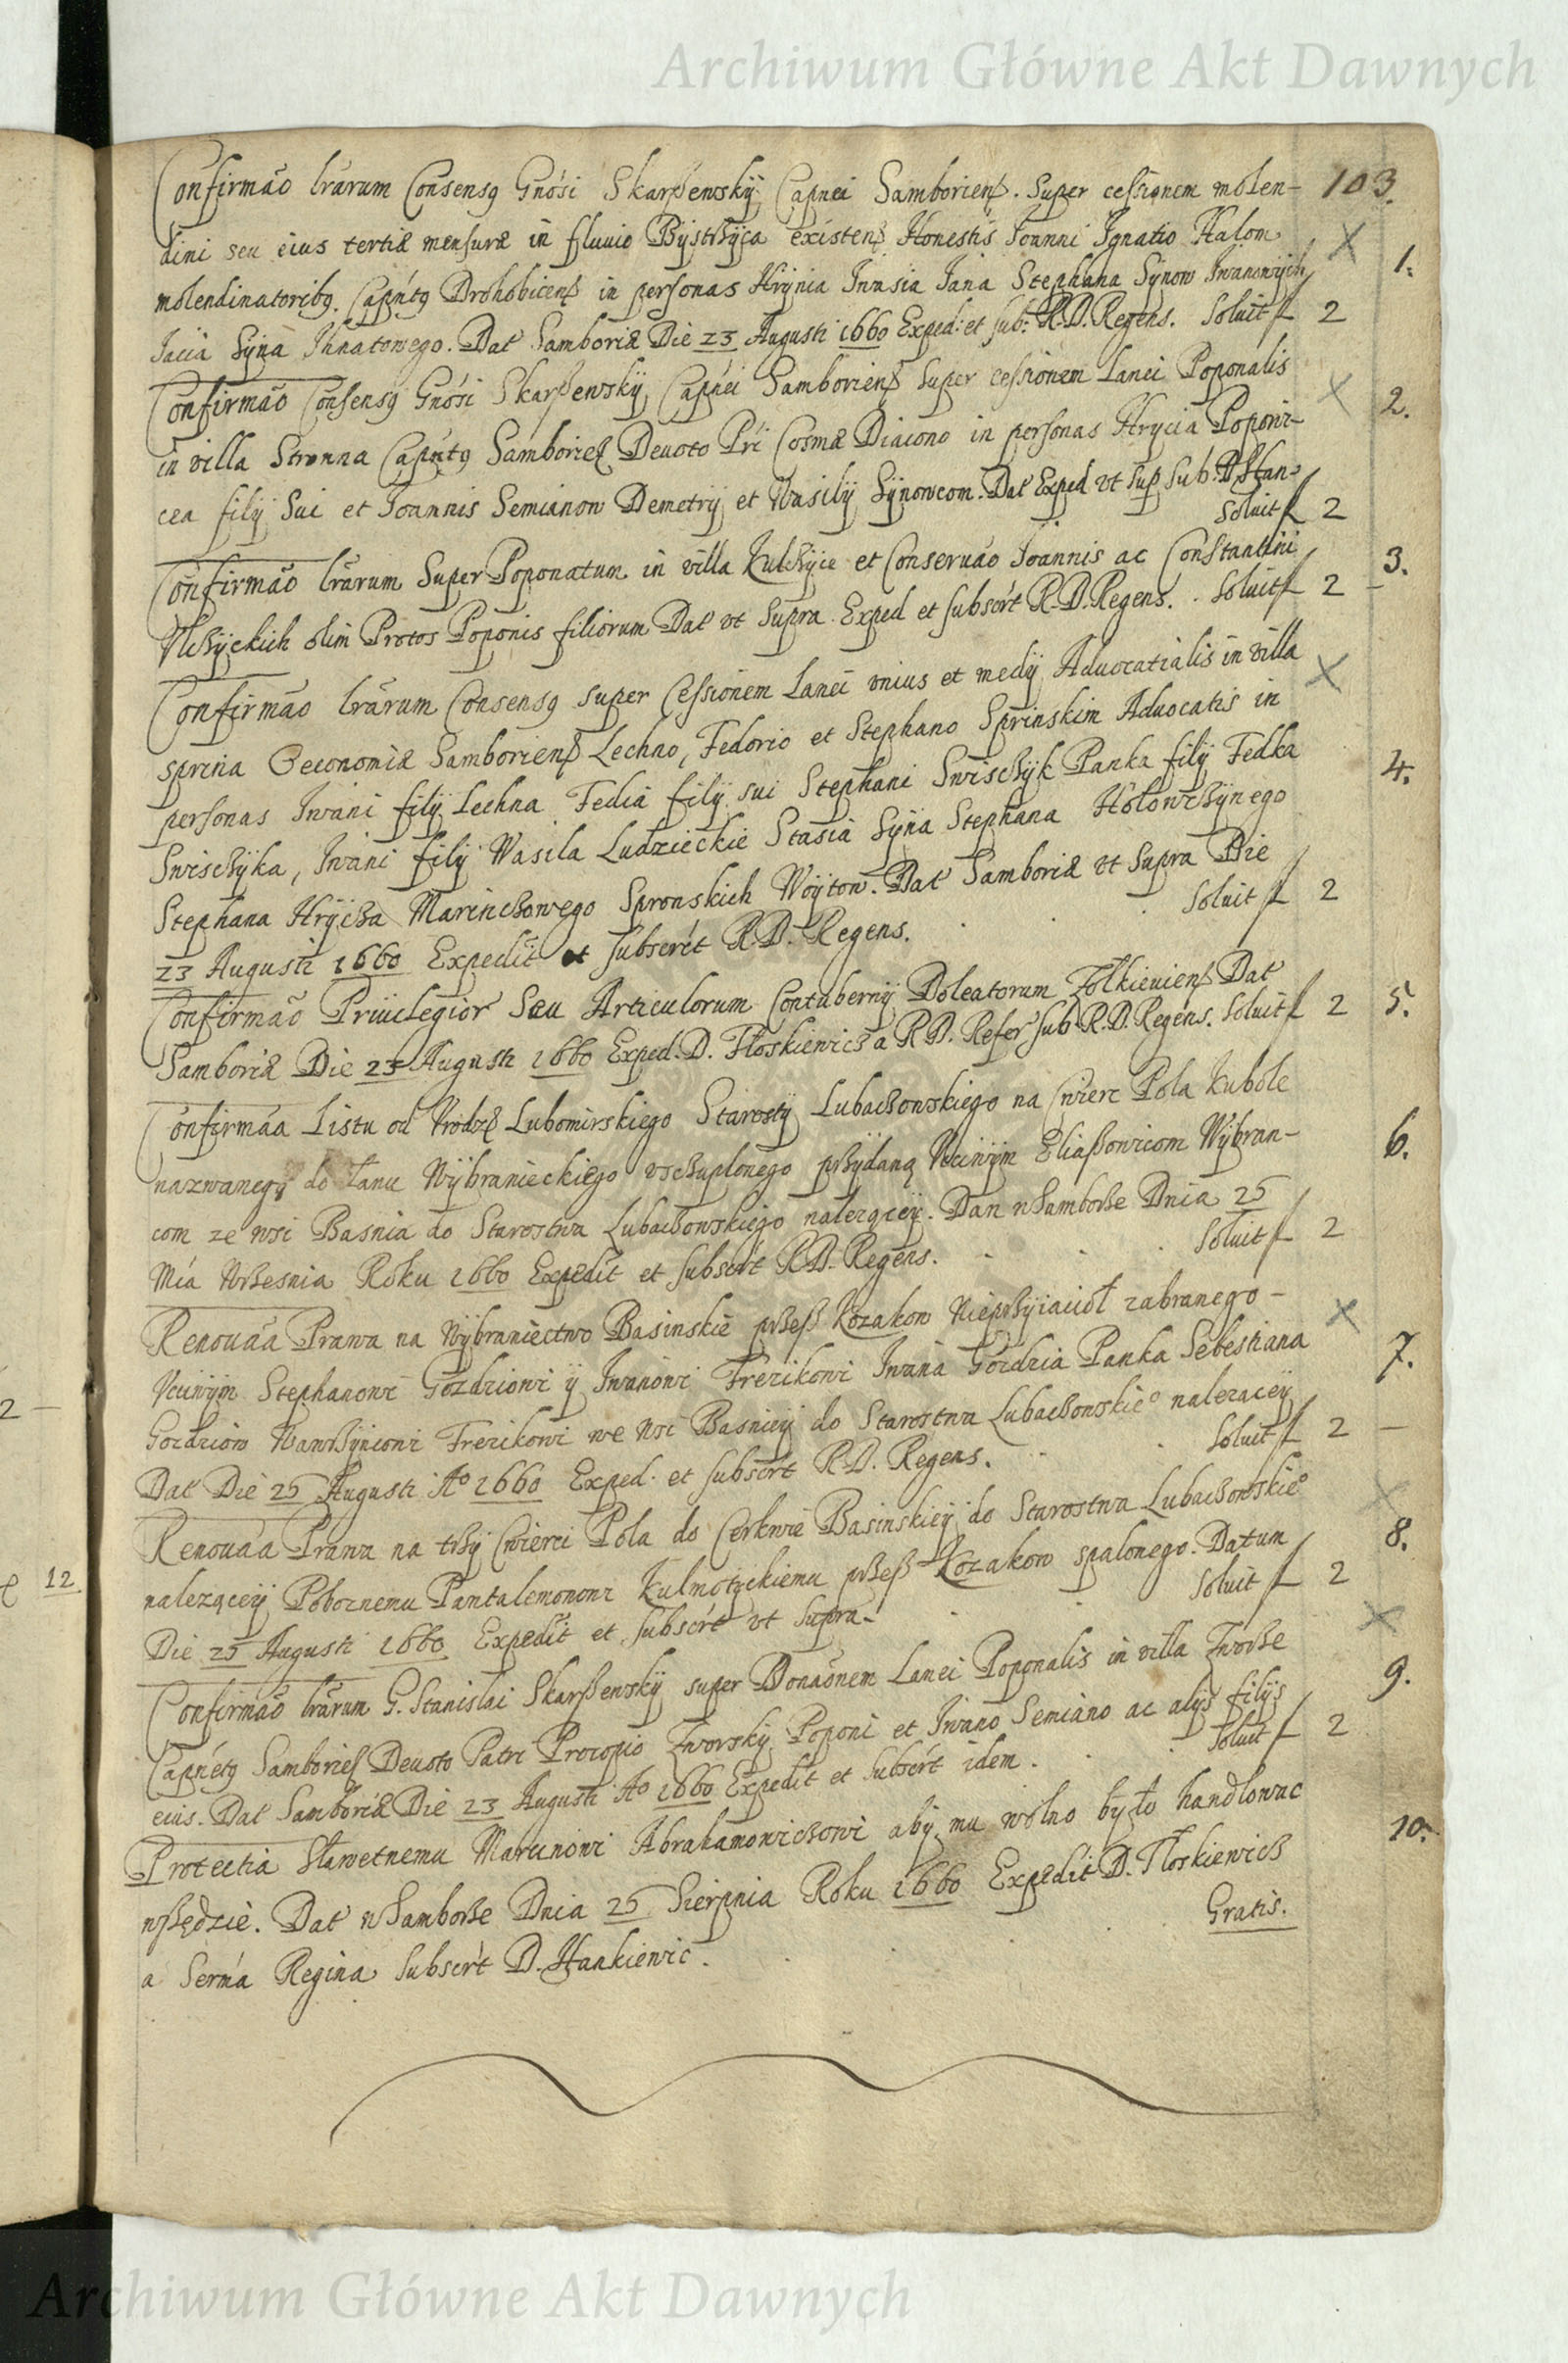 Archiwum Główne Akt Dawnych
103.
Confirmão lrãrum Consensꝯ Gnõsi Skarßewskÿ Capnei Samborienß. Super cessionem molen-
dini seu eius tertiæ mensuræ in fluvio Bÿstrzÿca existenß Honestis Joanni Ignatio Halom
molendinatoribꝯ. Capńtꝯ Drohobicenß in personas Hrÿnia Iwasia Jana Stephana Sÿnow Iwanowÿch
Jacia Sÿna Ihnatowego. Dat Samboriæ Die 23 Augusti 1660 Exped: et sub: R.D. Regens. Soluit f 2
1.
Confirmão Consensꝯ Gnósi Skarßewskÿ Capńei Samborienß Super cessionem Lanei Poponalis
in villa Stronna Capńtꝯ Samborieß Deuoto Prí Cosmæ Diacono in personas Hrycia Popowi-
cea filÿ Sui et Joannis Semianow Demetrÿ et Wasilÿ Sÿnowcom. Dat Exped vt Sup Sub.
Soluit f 2
2.
Confirmão lrãrum Super Poponatum in villa Kulczÿce et Conseruão Joannis ac Constantini
Vlczÿckich olim Protos Poponis filiorum Dat vt Supra. Exped et subscrt R.D. Regens. Soluit f 2
3.
Confirmão lrãrum Consensꝯ super Cessionem Lanei vnius et medÿ Aduocatialis in villa
sprina Oeconomiæ Samborienß Lechno, Fedorio et Stephano Sprinskim Aduocatis in
personas Iwani filÿ Lechna Fedia filÿ sui Stephani Swisczÿk Panka filÿ Fedka
Swisczÿka, Iwani filÿ Wasila Ludzieckie Stasia Sÿna Stephana Hołowczÿnego
Stephana Hrÿcza Marinczowego Spronskich Woÿtow. Dat Samboriæ vt Supra Die
23 Augusti 1660 Expedit et subscrít R.D. Regens. Soluit f 2
4.
Confirmão Priuilegior Seu Articulorum Contubernÿ Doleatorum Zolkieuienß Dat
Samboriæ Die 23 Augusti 1660 Exped. D. Floskiewicz a R D. Refer sub R.D. Regens. Soluit f 2
5.
Confirmãa Listu od Vrodzß Lubomirskiego Starostÿ Lubaczowskiego na Cwierc Pola Kubole
nazwanegꝯ do Łanu Wÿbranieckiego vsczuplonego przÿdaną Vcciwÿm Eliaßowicom Wÿbran-
com ze wsi Basnia do Starostwa Lubaczowskiego nalezącey. Dan w Samborze Dnia 25
Mía Wrzesnia Roku 1660 Expedit et subscrt R.D. Regens. Soluit f 2
6.
Renouãa Prawa na Wÿbraniectwo Basinskie przeß Kozakow Nieprzÿiaciół zabranego -
Vcciwÿm Stephanowi Gozdziowi ÿ Iwanowi Frezikowi Iwana Gozdzia Panka Sebestiana
Gozdziow Wawrzÿncowi Frezikowi we wsi Basnieÿ do Starostwa Lubaczowskie° nalezaceÿ
Dat Die 25 Augusti A° 1660 Exped. et subscrt R.D. Regens. Soluit f 2 -
7.
Renouãa Prawa na trzÿ Cwierci Pola do Cerkwie Basinskieÿ do Starostwa Lubaczowskie°
nalezącey Poboznemu Pantalemonowi Kulmatyckiemu przeß Kozakow spalonego. Datum
Die 25 Augusti 1660 Expedit et subscrt vt Supra - Soluit f 2
8.
Confirmão lrãrum G. Stanislai Skarßewskÿ super Donaõnem Lanei Poponalis in villa Zworze
Capńetꝯ Samborieß Deuoto Patri Procopio Zworskÿ Poponi et Iwano Semiano ac alÿs filÿs
eius. Dat Samboriæ Die 23 Augusti A° 1660 Expedit et Subscrt idem. Soluit f 2
9.
Protectia Sławetnemu Marcinowi Abrahamowiczowi abÿ mu wolno było handlowac
wßędzie. Dat w Samborze Dnia 25 Sierpnia Roku 1660 Expedit D. Floskiewicz
a Serma Regina Subscrt D. Hankiewic. Gratis.
10.
2 -
12.
Archiwum Główne Akt Dawnych